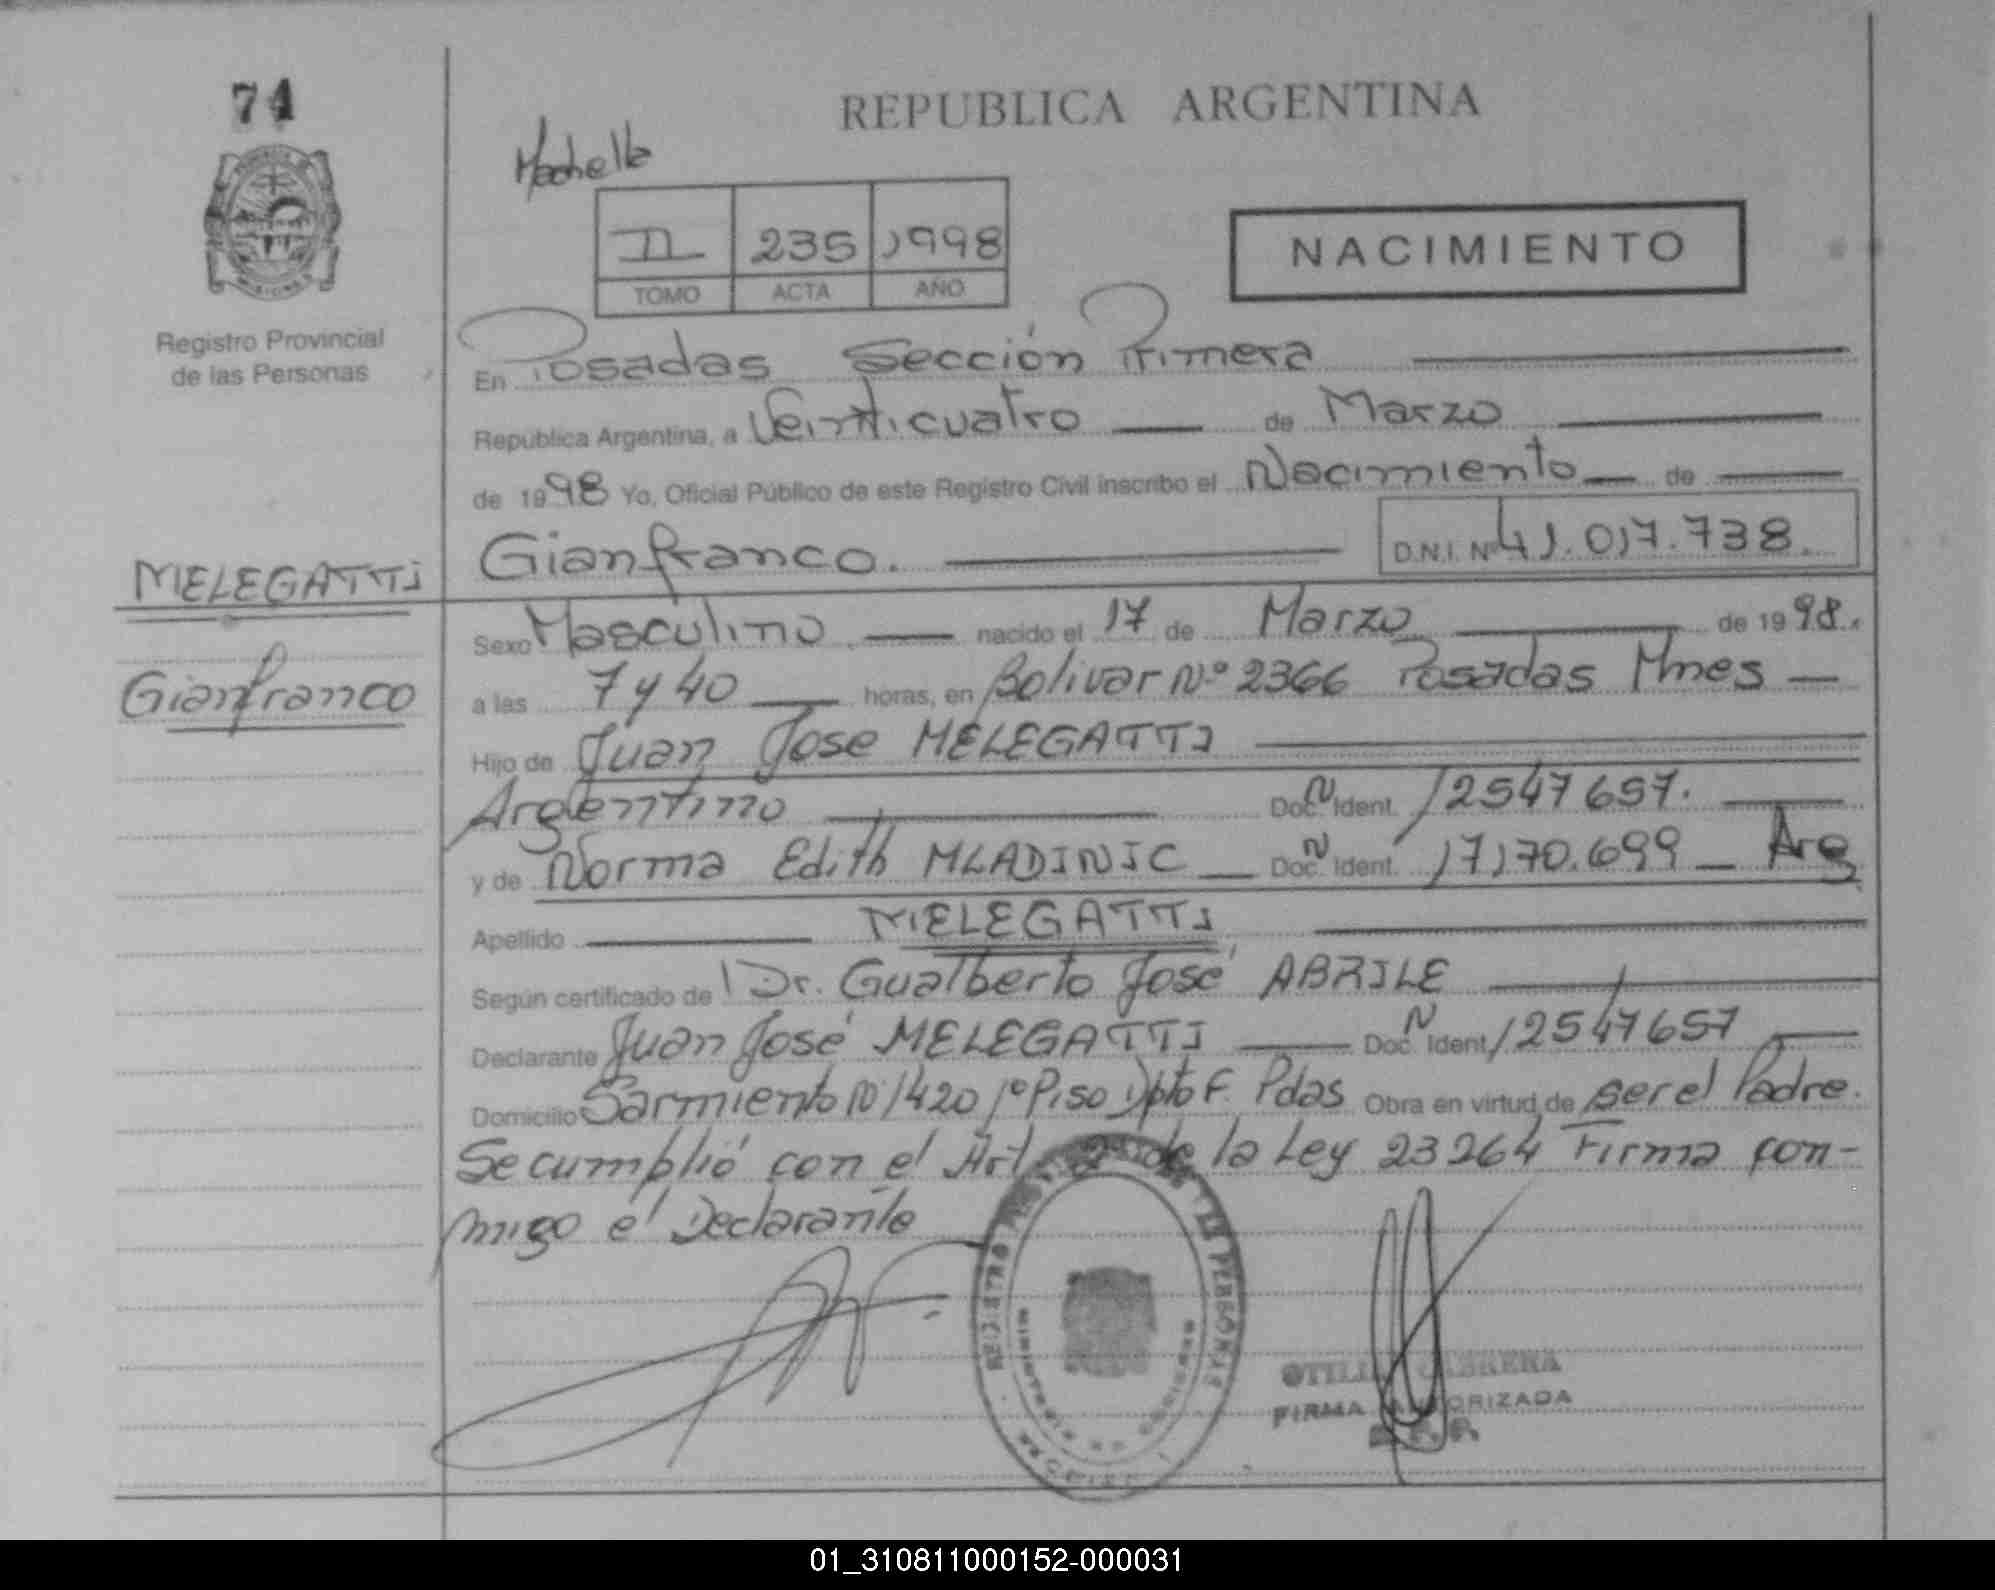 74
REPUBLICA ARGENTINA
II 235 1998
TOMO ACTA AÑO
NACIMIENTO
Registro Provincial
de las Personas
En Posadas Sección Primera
República Argentina, a Veinticuatro de Marzo
de 1998 Yo, Oficial Público de este Registro Civil inscribo el Nacimiento de
Gianfranco. D.N.I. Nº 41.017.738.
MELEGATTI
Gianfranco
Sexo Masculino nacido el 17 de Marzo de 1998.
a las 7 y 40 horas, en Bolivar Nº 2366 Posadas Mnes
Hijo de Juan Jose MELEGATTI
Argentino Doc. N Ident. 12547657.
y de Norma Edith MLADINIC Doc. N Ident. 17170.699 Arg
Apellido MELEGATTI
Según certificado de Dr. Gualberto José ABRILE
Declarante Juan José MELEGATTI Doc. N Ident. 12547657
Domicilio Sarmiento N 1420 1º Piso Dpto F. Pdas Obra en virtud de ser el Padre.
Se cumplió con el Art 2º de la Ley 23264 Firma con-
migo el Declarante
FIRMA AUTORIZADA
01_310811000152-000031